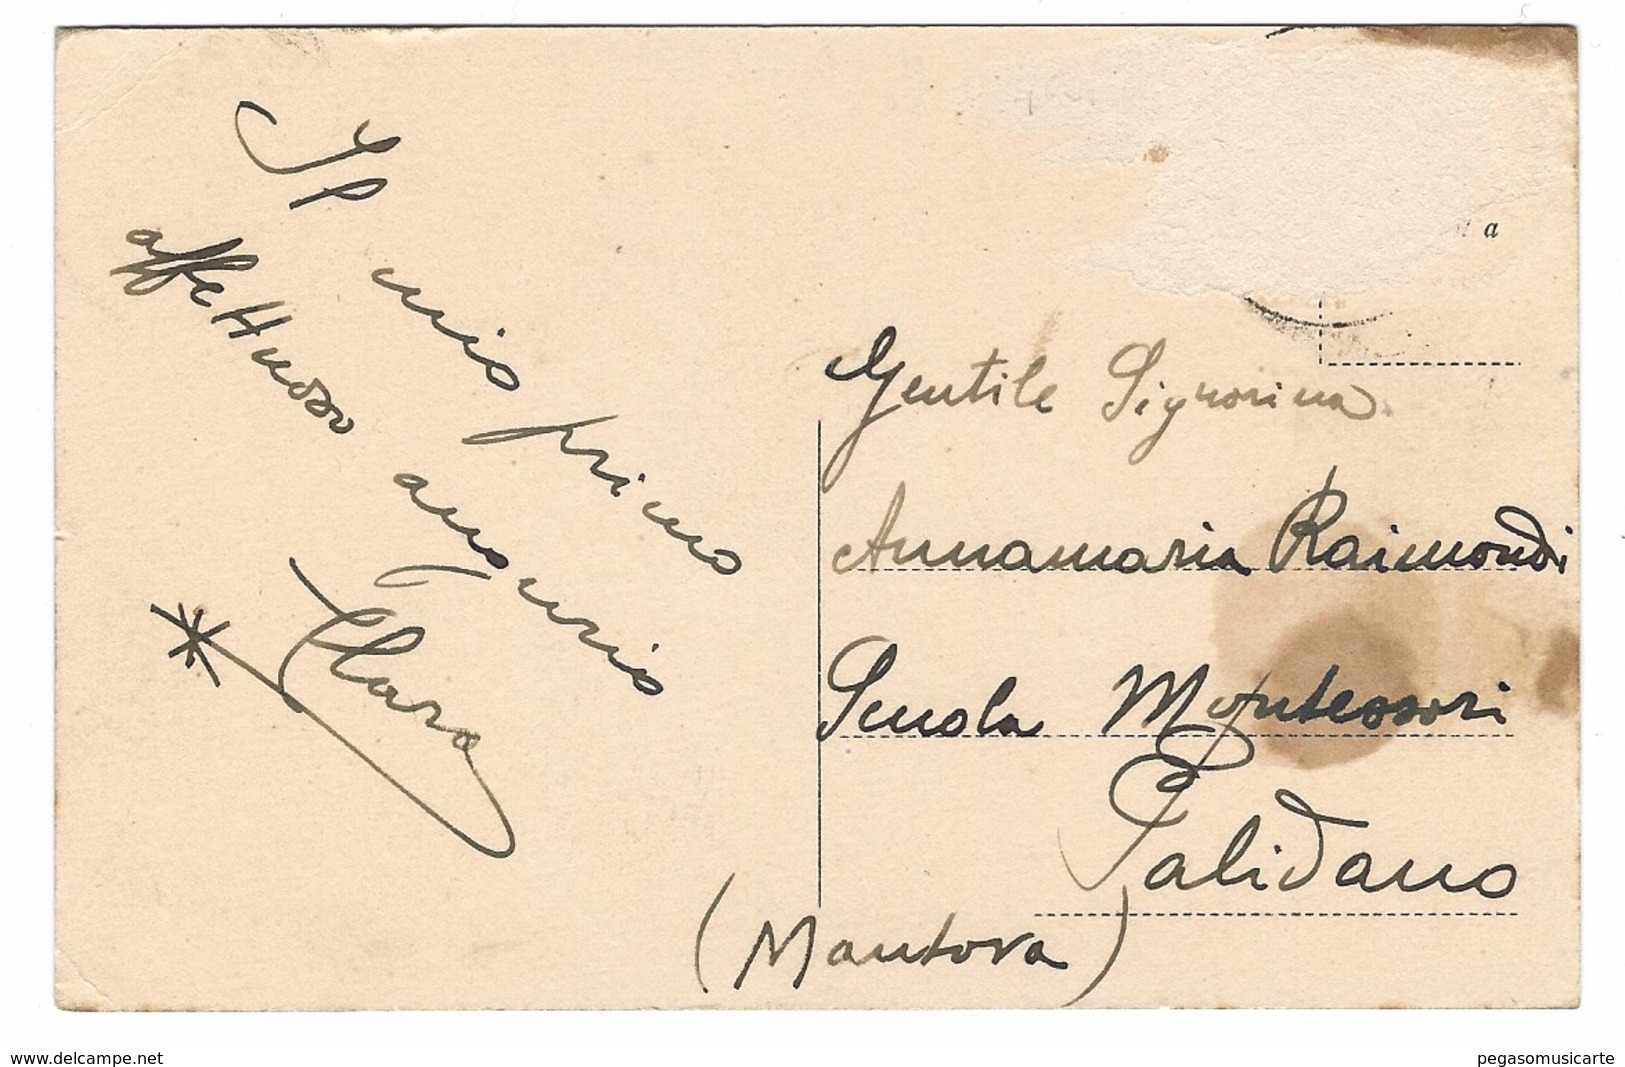 Il
mio primo
affettuoso augurio
Clara
a
Gentile Signorina
Annamaria Raimondi
Scuola Montessori
Palidano
(Mantova)
www.delcampe.net
pegasomusicarte